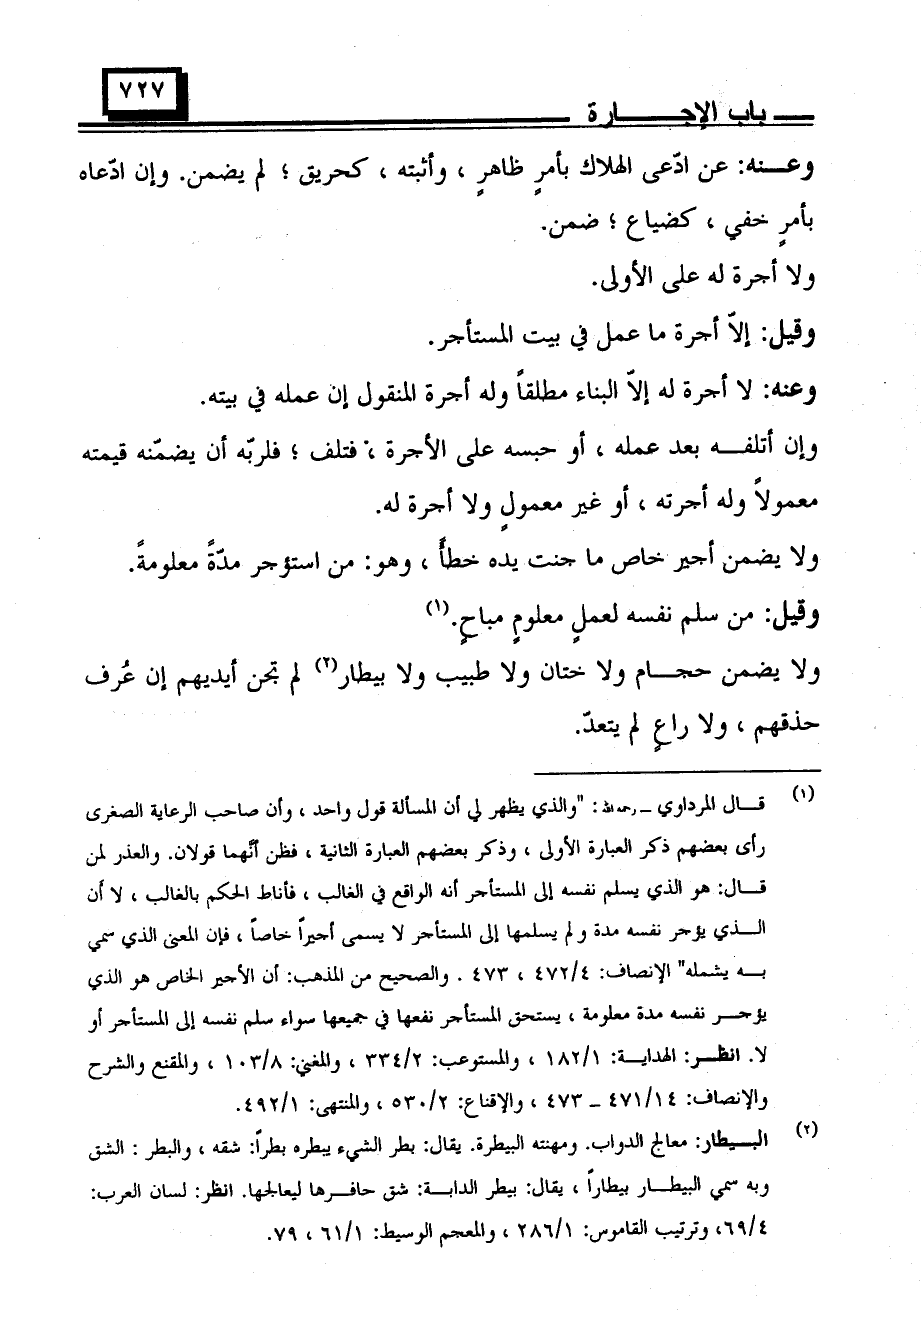 ٧٢٧
باب الإجـــــارة
وعـــنه: عن ادّعى الهلاك بأمرٍ ظاهرٍ ، وأثبته ، كحريق ؛ لم يضمن. وإن ادّعاه
بأمرٍ خفي ، كضياع ؛ ضمن.
ولا أجرة له على الأولى.
وقيل: إلاّ أجرة ما عمل في بيت المستأجر.
وعنه: لا أجرة له إلاّ البناء مطلقاً وله أجرة المنقول إن عمله في بيته.
وإن أتلفـــه بعد عمله ، أو حبسه على الأجرة ، فتلف ؛ فلربّه أن يضمّنه قيمته
معمولاً وله أجرته ، أو غير معمولٍ ولا أجرة له.
ولا يضمن أجير خاص ما جنت يده خطأً ، وهو: من استؤجر مدّةً معلومةً.
وقيل: من سلم نفسه لعملٍ معلومٍ مباحٍ.(١)
ولا يضمن حجـــام ولا ختان ولا طبيب ولا بيطار(٢) لم تجن أيديهم إن عُرف
حذقهم ، ولا راعٍ لم يتعدّ.
(١) قـــال المرداوي ــ رحمه الله : "والذي يظهر لي أن المسألة قول واحد ، وأن صاحب الرعاية الصغرى
رأى بعضهم ذكر العبارة الأولى ، وذكر بعضهم العبارة الثانية ، فظن أنّهما قولان. والعذر لمن
قـــال: هو الذي يسلم نفسه إلى المستأجر أنه الواقع في الغالب ، فأناط الحكم بالغالب ، لا أن
الـــذي يؤجر نفسه مدة ولم يسلمها إلى المستأجر لا يسمى أجيراً خاصاً ، فإن المعنى الذي سمي
بـــه يشمله" الإنصاف: ٤٧٢/٤ ، ٤٧٣ . والصحيح من المذهب: أن الأجير الخاص هو الذي
يؤجـــر نفسه مدة معلومة ، يستحق المستأجر نفعها في جميعها سواء سلم نفسه إلى المستأجر أو
لا. انظـــر: الهداية: ١٨٢/١ ، والمستوعب: ٣٣٤/٢ ، والمغني: ١٠٣/٨ ، والمقنع والشرح
والإنصاف: ٤٧١/١٤ ــ ٤٧٣ ، والإقناع: ٥٣٠/٢ ، والمنتهى: ٤٩٢/١.
(٢) البـــيطار: معالج الدواب. ومهنته البيطرة. يقال: بطر الشيء يبطره بطراً: شقه ، والبطر : الشق
وبه سمي البيطـــار بيطاراً ، يقال: بيطر الدابة: شق حافـــرها ليعالجها. انظر: لسان العرب:
٦٩/٤، وترتيب القاموس: ٢٨٦/١ ، والمعجم الوسيط: ٦١/١ ، ٧٩.